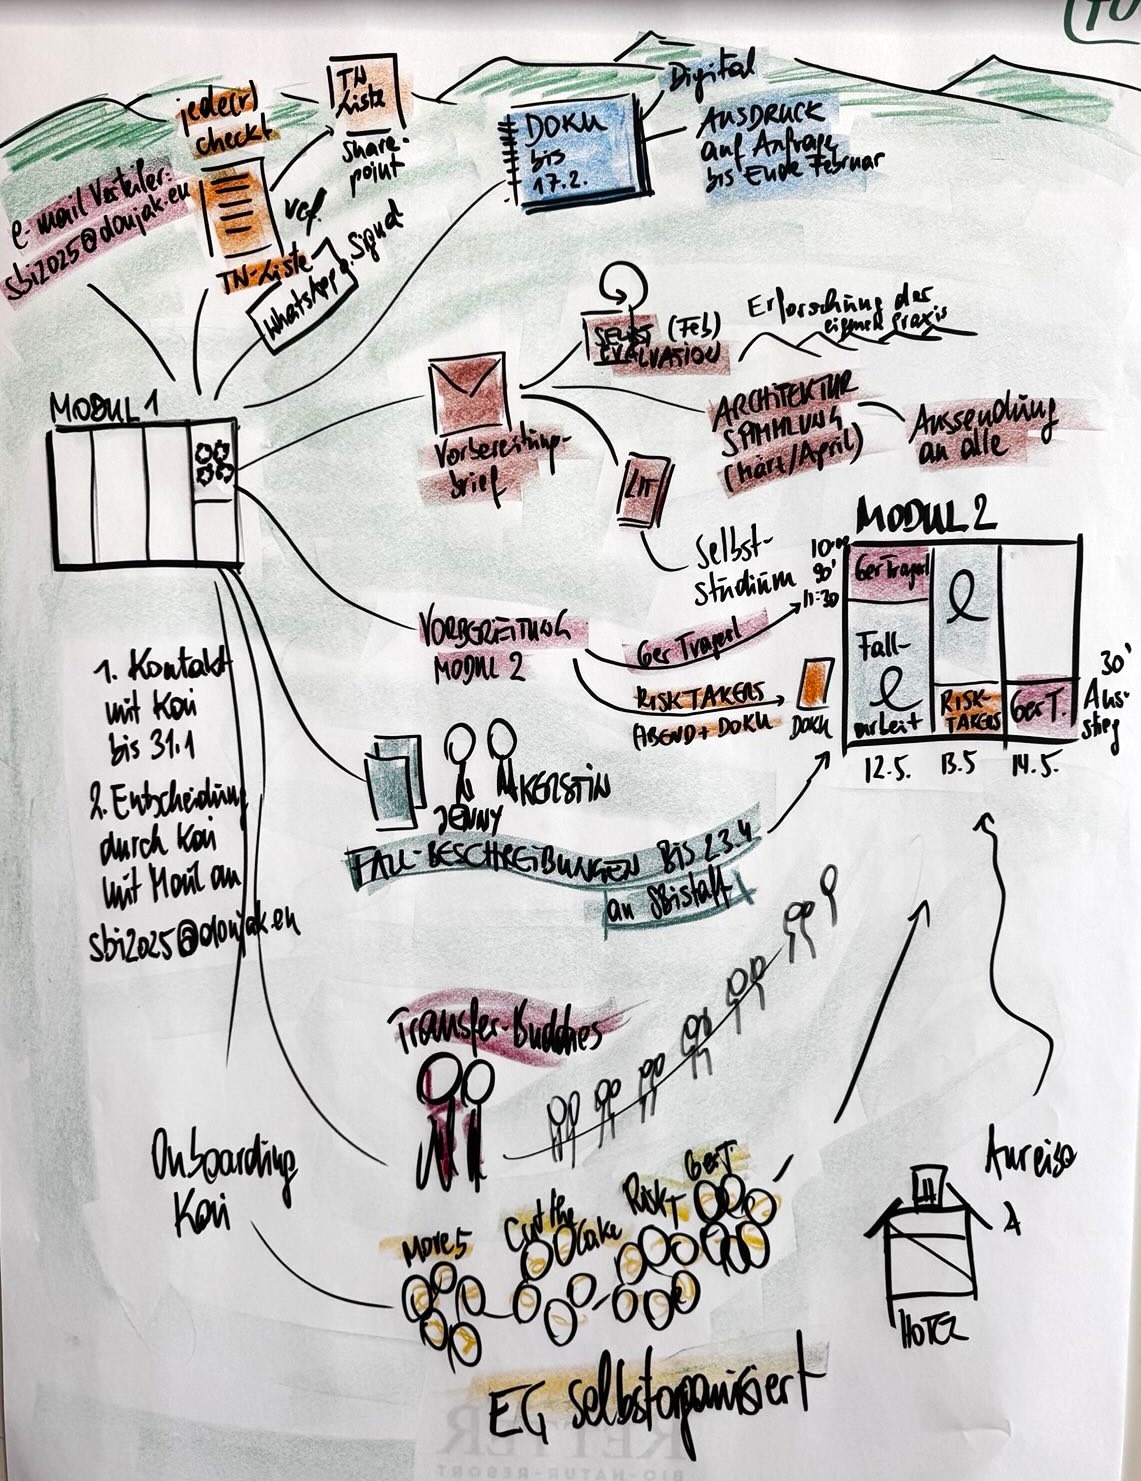 jede(r)
checkt
TN
Liste
Share-
point
e-mail Verteiler:
sbi2025@donjak.eu
TN-Liste
WhatsApp
Signal
DOKU
bis
17.2.
Digital
AUSDRUCK
auf Anfrage
bis Ende Februar
MODUL 1
Vorbereitung-
brief
SELBST (Feb)
EVALUATION
Erforschung der
eigenen Praxis
ARCHITEKTUR
SAMMLUNG
(März/April)
Aussendung
an alle
LIT
Selbst-
studium
VORBEREITUNG
MODUL 2
6er Trageri
RISKTAKERS
ABEND + DOKU
DOKU
MODUL 2
10:00
90'
11:30
6er Trageri
Fall-
arbeit
RISK-
TAKERS
6er T.
30'
Aus-
stieg
12.5.
13.5
14.5.
1. Kontakt
mit Kai
bis 31.1
2. Entscheidung
durch Kai
mit Mail an
sbi2025@donjak.eu
JENNY
KERSTIN
FALL-BESCHREIBUNGEN BIS 23.4
an SBistaff
Transfer-Buddies
Onboarding
Kai
More 5
Cut the
Cake
RiskT
6er T.
EG selbstorganisiert
Anreise
HOTEL
RETTER
BIO-NATUR-RESORT